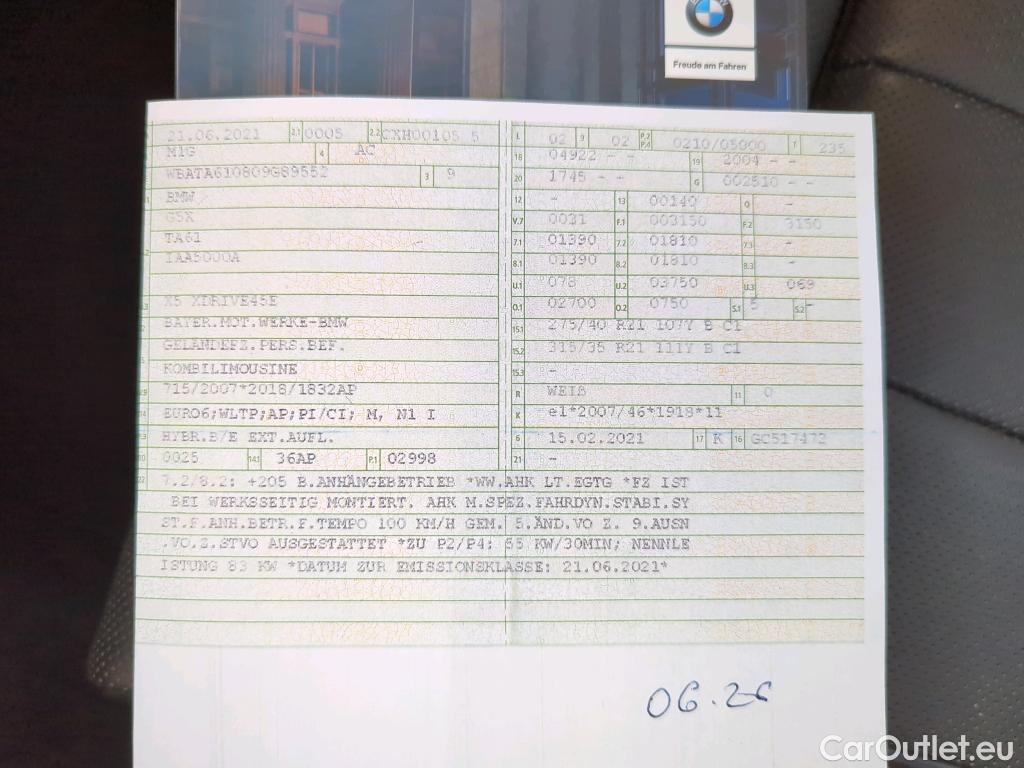 BMW
Freude am Fahren
21.06.2021 2.1 0005 2.2 CXH00105 5 L 02 9 02 P.2 P.4 0210/05000 T 235
M1G 4 AC 18 04922 - - 19 2004 - -
WBATA610809G89552 3 9 20 1745 - - G 002510 - -
BMW 12 - 13 00140 Q -
G5X V.7 0031 F.1 003150 F.2 3150
TA61 7.1 01390 7.2 01810 7.3 -
IAA5000A 8.1 01390 8.2 01810 8.3 -
U.1 078 U.2 03750 U.3 069
X5 XDRIVE45E O.1 02700 O.2 0750 S.1 5 S.2 -
BAYER.MOT.WERKE-BMW 15.1 275/40 R21 107Y B C1
GELÄNDEFZ.PERS.BEF. 15.2 315/35 R21 111Y B C1
KOMBILIMOUSINE 15.3 -
715/2007*2018/1832AP R WEIß 11 0
14 EURO6;WLTP;AP;PI/CI; M, N1 I K e1*2007/46*1918*11
HYBR.B/E EXT.AUFL. 6 15.02.2021 17 K 16 GC517472
10 0025 14.1 36AP P.1 02998 21 -
22 7.2/8.2: +205 B.ANHÄNGEBETRIEB *WW.AHK LT.EGTG *FZ IST
BEI WERKSSEITIG MONTIERT. AHK M.SPEZ.FAHRDYN.STABI.SY
ST.F.ANH.BETR.F.TEMPO 100 KM/H GEM. 5.ÄND.VO Z. 9.AUSN
.VO.Z.STVO AUSGESTATTET *ZU P2/P4: 55 KW/30MIN; NENNLE
ISTUNG 83 KW *DATUM ZUR EMISSIONSKLASSE: 21.06.2021*
06.26
CarOutlet.eu